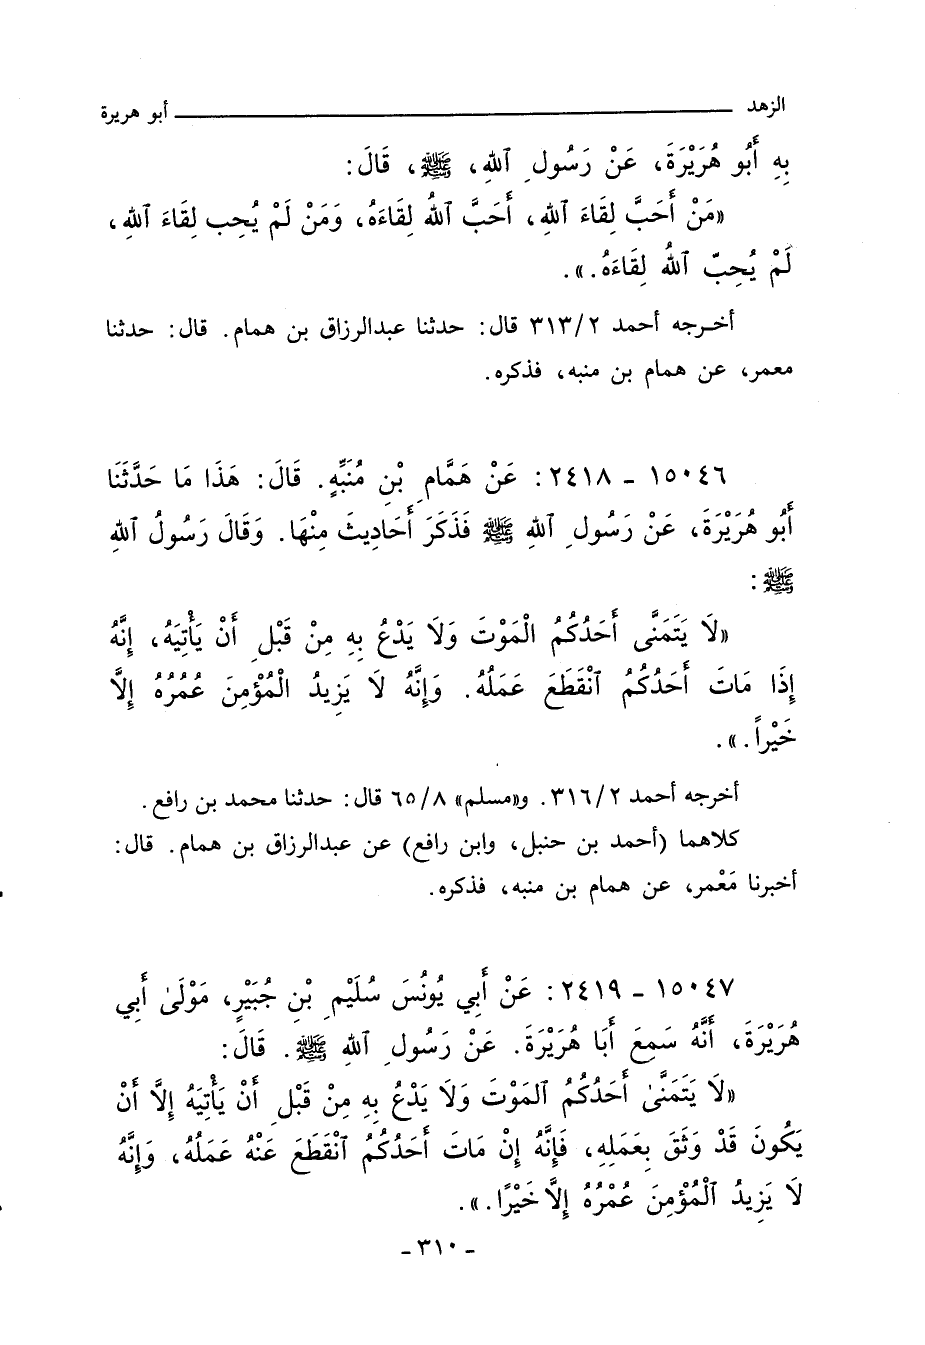 الزهد ــــــــ أبو هريرة
بِهِ أَبُو هُرَيْرَةَ، عَنْ رَسُولِ اللهِ، ﷺ، قَالَ:
«مَنْ أَحَبَّ لِقَاءَ اللهِ، أَحَبَّ اللهُ لِقَاءَهُ، وَمَنْ لَمْ يُحِب لِقَاءَ اللهِ،
لَمْ يُحِبّ اللهُ لِقَاءَهُ.».
أخرجه أحمد ٣١٣/٢ قال: حدثنا عبدالرزاق بن همام. قال: حدثنا
معمر، عن همام بن منبه، فذكره.
١٥٠٤٦ - ٢٤١٨: عَنْ هَمَّامِ بْنِ مُنَبِّهٍ. قَالَ: هَذَا مَا حَدَّثَنَا
أَبُو هُرَيْرَةَ، عَنْ رَسُولِ اللهِ ﷺ فَذَكَرَ أَحَادِيثَ مِنْهَا. وَقَالَ رَسُولُ اللهِ
ﷺ:
«لَا يَتَمَنَّى أَحَدُكُمُ الْمَوْتَ وَلَا يَدْعُ بِهِ مِنْ قَبْلِ أَنْ يَأْتِيَهُ، إِنَّهُ
إِذَا مَاتَ أَحَدُكُمُ انْقَطَعَ عَمَلُهُ. وَإِنَّهُ لَا يَزِيدُ الْمُؤْمِنَ عُمُرُهُ إِلَّا
خَيْراً.».
أخرجه أحمد ٣١٦/٢. و«مسلم» ٦٥/٨ قال: حدثنا محمد بن رافع.
كلاهما (أحمد بن حنبل، وابن رافع) عن عبدالرزاق بن همام. قال:
أخبرنا مَعْمر، عن همام بن منبه، فذكره.
١٥٠٤٧ - ٢٤١٩: عَنْ أَبِي يُونُسَ سُلَيْمِ بْنِ جُبَيْرٍ، مَوْلَىٰ أَبِي
هُرَيْرَةَ، أَنَّهُ سَمِعَ أَبَا هُرَيْرَةَ. عَنْ رَسُولِ اللهِ ﷺ. قَالَ:
«لَا يَتَمَنَّىٰ أَحَدُكُمُ الْمَوْتَ وَلَا يَدْعُ بِهِ مِنْ قَبْلِ أَنْ يَأْتِيَهُ إِلَّا أَنْ
يَكُونَ قَدْ وَثَقَ بِعَمَلِهِ، فَإِنَّهُ إِنْ مَاتَ أَحَدُكُمُ انْقَطَعَ عَنْهُ عَمَلُهُ، وَإِنَّهُ
لَا يَزِيدُ الْمُؤْمِنَ عُمْرُهُ إِلَّا خَيْرًا.».
- ٣١٠ -